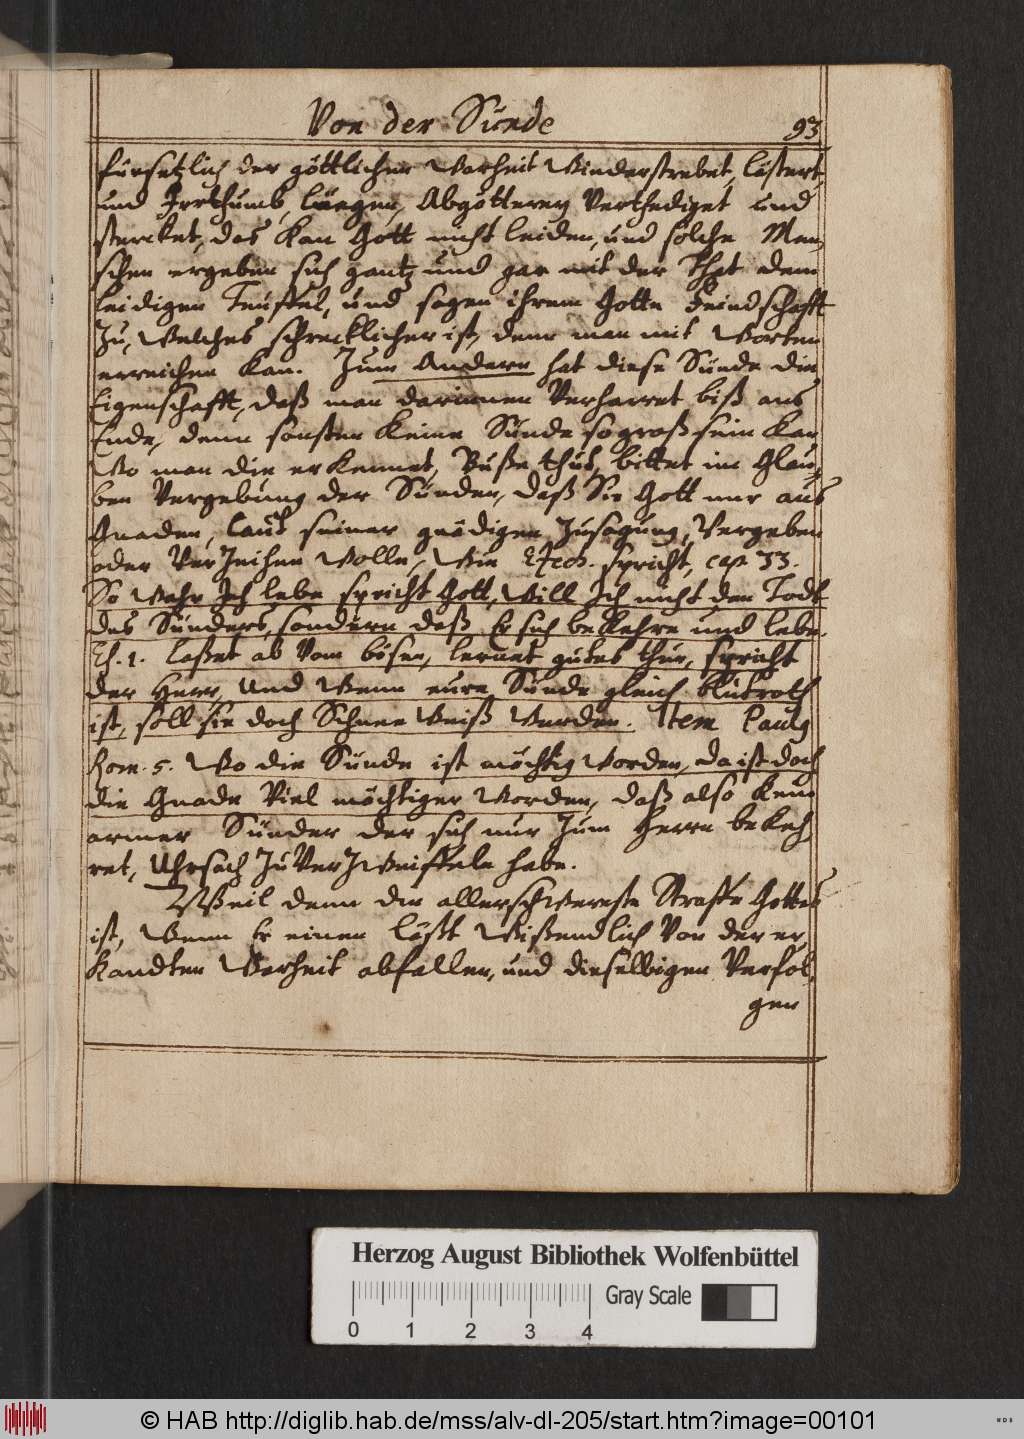 Von der Sünde
93
fürsetzlich der göttlichen Warheit Wiederstrebet, lästert,
und Irrthumb, lüegen, Abgötterey Verthediget und
stercket, das Kan Gott nicht leiden, und solche Men,
schen ergeben sich gantz und gar mit der That dem
leidigen Teuffel, und sagen ihrem Gotte Feindschafft
Zu, Welches schrecklicher ist, denn man mit Worten
erreichen Kan. Zum Andern hat diese Sünde die
Eigenschafft, daß man darinnen Verharret biß ans
Ende, denn sonsten Keine Sünde so groß sein Kan
Wo man die erkennet, Buße thut, bittet im Glau,
ben Vergebung der Sünden, daß Sie Gott nur aus
Gnaden, laut seiner gnädigen Zusagung, Vergeben
oder VerZeihen Wolle, Wie Ezech. spricht, cap 33.
So Wahr Ich lebe spricht Gott, Will Ich nicht den Todt
des Sünders, sondern daß Er sich beKehre und lebe.
Es. 1. Laßet ab Vom bösen, lernet gutes thun, spricht
der Herr, Und Wenn eure Sünde gleich blutroth
ist, soll sie doch Schnee Weiß Werden. Item Paulg
Rom. 5. Wo die Sünde ist mächtig Worden, da ist doch
die Gnade Viel mächtiger Worden, daß also Kein
armer Sünder der sich nur Zum Herrn beKeh,
ret, Uhrsach ZuVerZweiffeln habe.
Weil denn die allerschwereste Straffe Gottes
ist, Wenn Er einen läßt Wißendlich Von der er,
Kandten Warheit abfallen, und dieselbigen Verfol,
gen
Herzog August Bibliothek Wolfenbüttel
Gray Scale
0 1 2 3 4
© HAB http://diglib.hab.de/mss/alv-dl-205/start.htm?image=00101